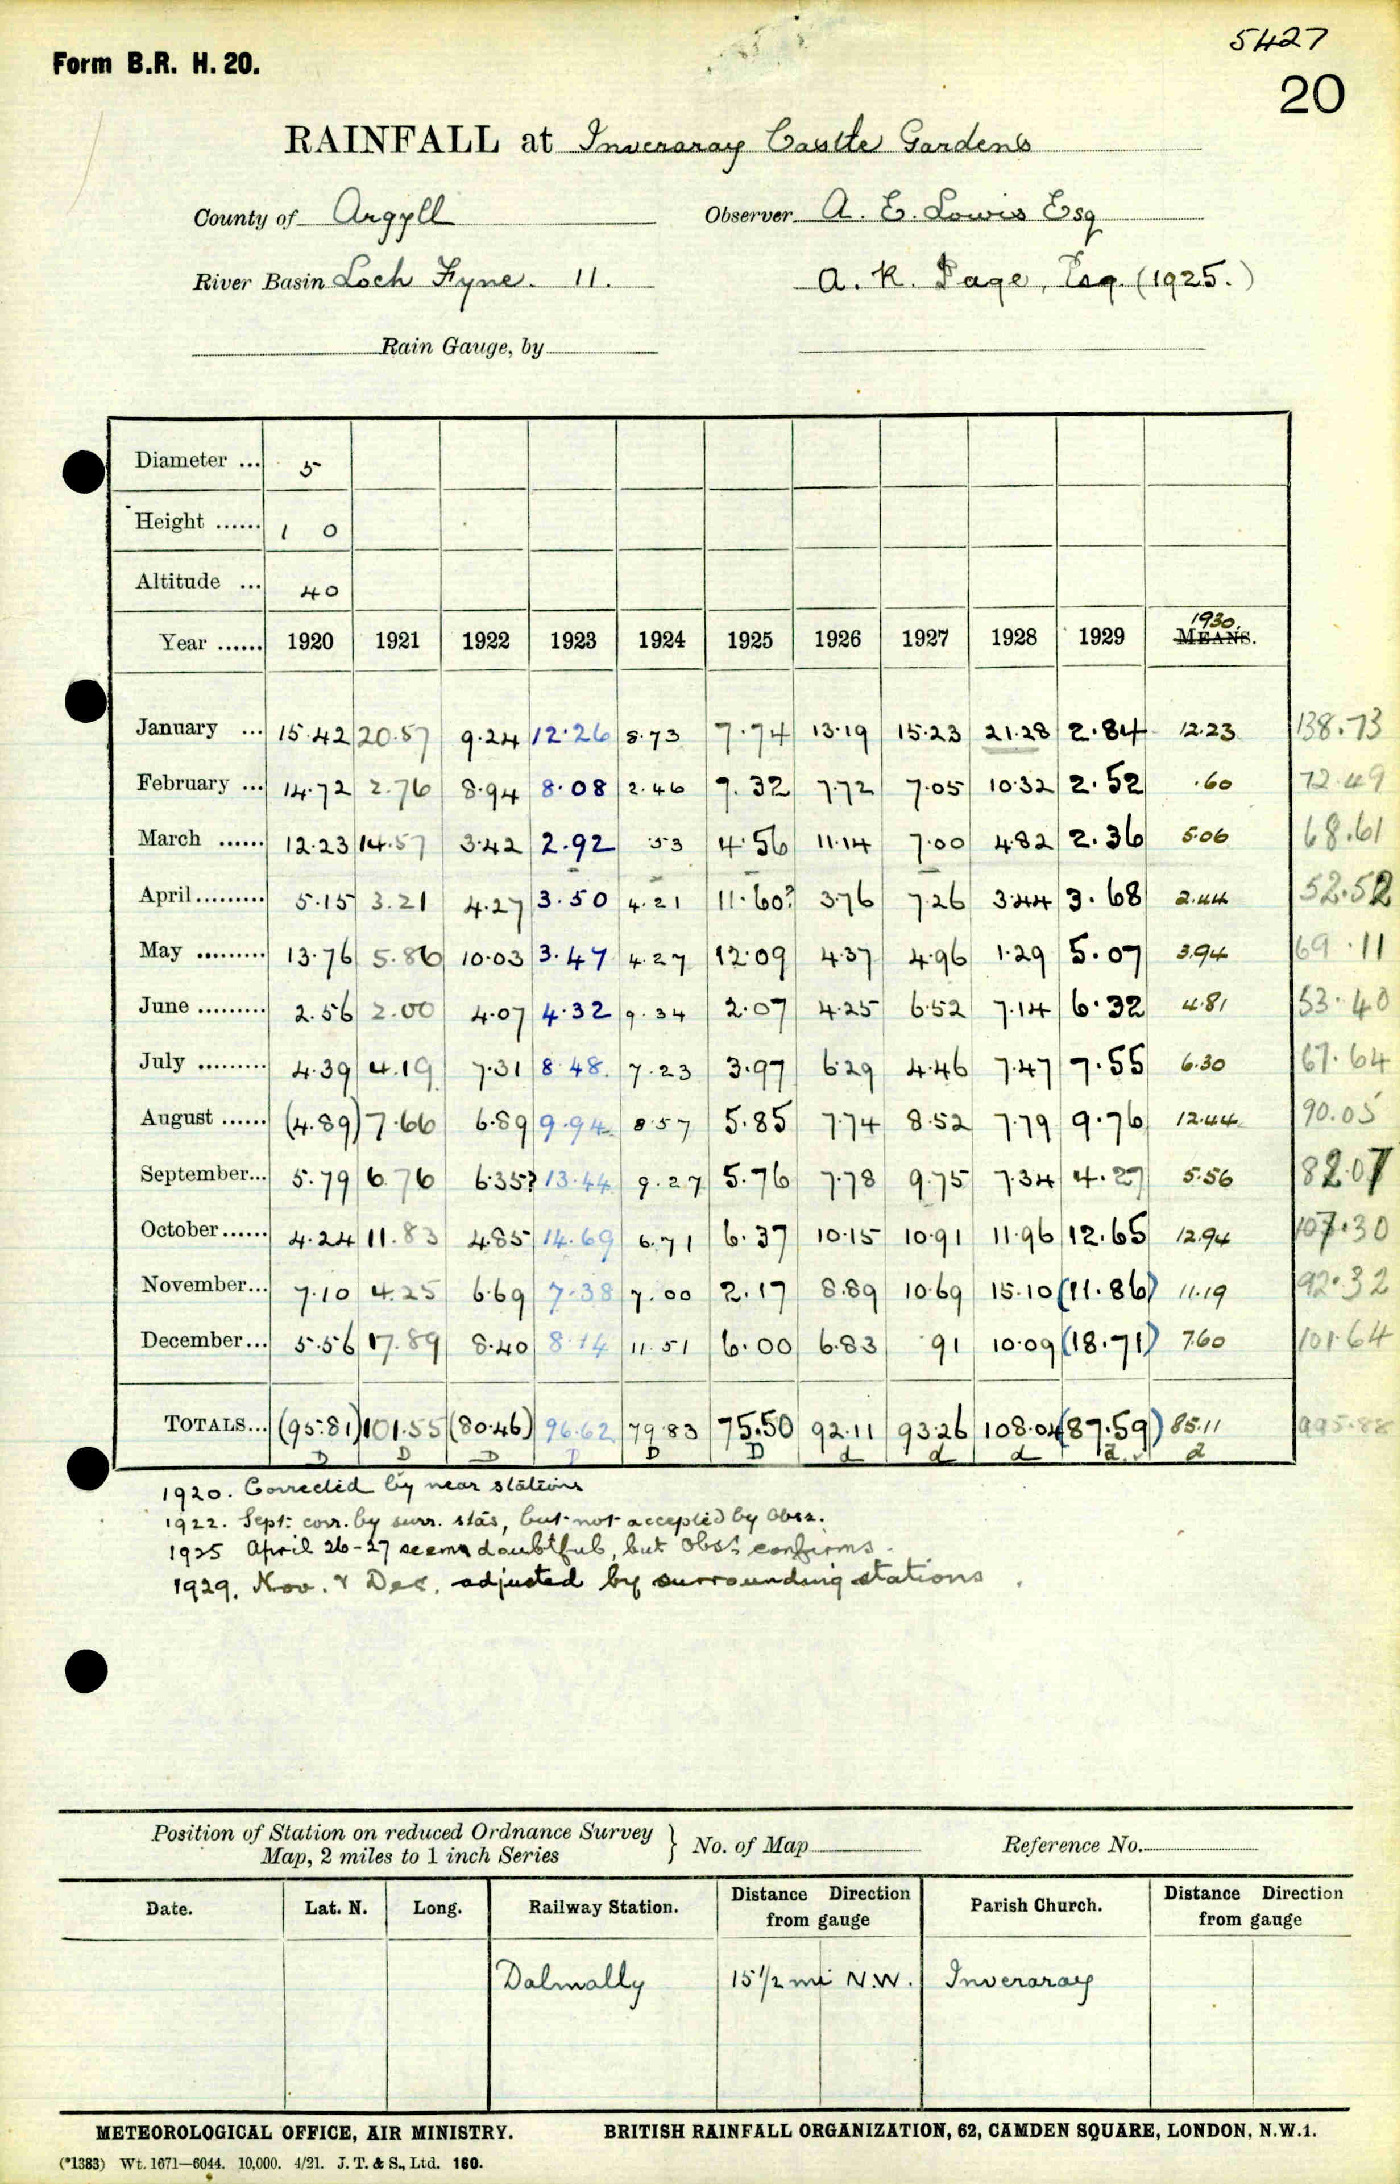 5427
Form B.R. H. 20.
20
RAINFALL at Inveraray Castle Gardens
County of Argyll Observer A. E. Lowis Esq
River Basin Loch Fyne. 11. A. K. Page, Esq. (1925.)
Rain Gauge, by
Diameter ... 5
Height ...... 1 0
Altitude ... 40
1930.
Year ...... 1920 1921 1922 1923 1924 1925 1926 1927 1928 1929 MEANS.
January ... 15.42 20.57 9.24 12.26 8.73 7.74 13.19 15.23 21.28 2.84 12.23 138.73
February ... 14.72 2.76 8.94 8.08 2.46 7.32 7.72 7.05 10.32 2.52 .60 72.49
March ...... 12.23 14.57 3.42 2.92 53 4.56 11.14 7.00 4.82 2.36 5.06 68.61
April ......... 5.15 3.21 4.27 3.50 4.21 11.60? 3.76 7.26 3.44 3.68 2.44 52.52
May ......... 13.76 5.86 10.03 3.47 4.27 12.09 4.37 4.96 1.29 5.07 3.94 69.11
June ......... 2.56 2.00 4.07 4.32 9.34 2.07 4.25 6.52 7.14 6.32 4.81 53.40
July ......... 4.39 4.19 7.31 8.48 7.23 3.97 6.29 4.46 7.47 7.55 6.30 67.64
August ...... (4.89) 7.66 6.89 9.94 8.57 5.85 7.74 8.52 7.79 9.76 12.44 90.05
September... 5.79 6.76 6.35? 13.44 9.27 5.76 7.78 9.75 7.34 4.27 5.56 82.07
October...... 4.24 11.83 4.85 14.69 6.71 6.37 10.15 10.91 11.96 12.65 12.94 107.30
November... 7.10 4.25 6.69 7.38 7.00 2.17 8.89 10.69 15.10 (11.86) 11.19 92.32
December... 5.56 17.89 8.40 8.14 11.51 6.00 6.83 .91 10.09 (18.71) 7.60 101.64
TOTALS... (95.81) 101.55 (80.46) 96.62 79.83 75.50 92.11 93.26 108.04 (87.59) 85.11 995.88
D D D D D D d d d d d
1920. Corrected by near stations
1922. Sept: corr. by surr. stas, but not accepted by Obsr.
1925 April 26-27 seems doubtful, but Obsr. confirms.
1929. Nov. & Dec. adjusted by surrounding stations.
Position of Station on reduced Ordnance Survey
Map, 2 miles to 1 inch Series } No. of Map Reference No.
Date. Lat. N. Long. Railway Station. Distance Direction from gauge Parish Church. Distance Direction from gauge
Dalmally 15 1/2 mi N.W. Inveraray
METEOROLOGICAL OFFICE, AIR MINISTRY. BRITISH RAINFALL ORGANIZATION, 62, CAMDEN SQUARE, LONDON, N.W.1.
(*1383) Wt. 1671—6044. 10,000. 4/21. J. T. & S., Ltd. 160.